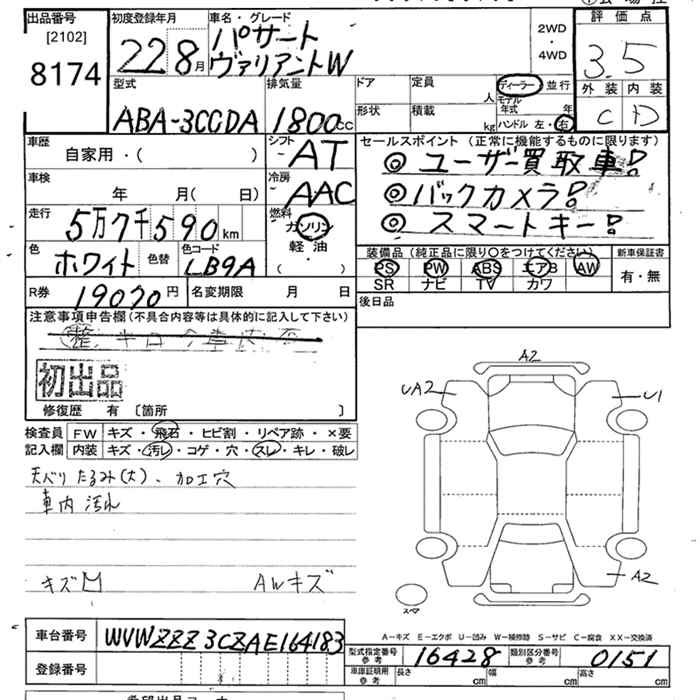 出品番号
[2102]
8174
初度登録年月
22 8月
車名・グレード
パサート
ヴァリアントW
2WD
・
4WD
評価点
3.5
外装 内装
C D
型式
ABA-3CCDA
排気量
1800cc
ドア
定員
人
形状
積載
kg
ディーラー 並行
モデル年式 年
ハンドル 左・右
車歴
自家用・( )
シフト
AT
車検
年 月( 日)
冷房
AAC
走行
5万7千590km
燃料
ガソリン
軽油
( ・ )
色
ホワイト
色替
色コード
LB9A
R券
19070円
名変期限 月 日
セールスポイント (正常に機能するものに限ります)
◎ ユーザー買取車!
◎ バックカメラ!
◎ スマートキー!
装備品(純正品に限り○をつけてください)
PS PW ABS エアB AW
SR ナビ TV カワ
新車保証書
有・無
後日品
注意事項申告欄(不具合内容等は具体的に記入して下さい)
初出品
修復歴 有 〔箇所 〕
検査員
記入欄
FW キズ・飛石・ヒビ割・リペア跡・×要
内装 キズ・汚レ・コゲ・穴・スレ・キレ・破レ
天ベリたるみ(大)、加工穴
車内汚れ
キズ凹
AWキズ
A2
UA2
U1
A2
スペア
A-キズ E-エクボ U-凹み W-補修跡 S-サビ C-腐食 XX-交換済
車台番号
WVWZZZ3CZAE164183
登録番号
型式指定番号
参考
16428
類別区分番号
参考
0151
車庫証明用
参考
長さ cm
幅 cm
高さ cm